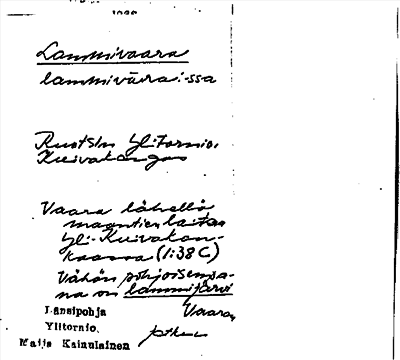 Lammivaara
lammivaara: -ssa
Ruotsin Ylitornio,
Kuivakangas
Vaara lähellä
magntien laitaa
Yli-Kuivakan-
kaassa (1:38 C)
Vähän pohjoisempa-
na on lammijärvi
Länsipohja Vaara,
Ylitornio.
Maija Kainulainen